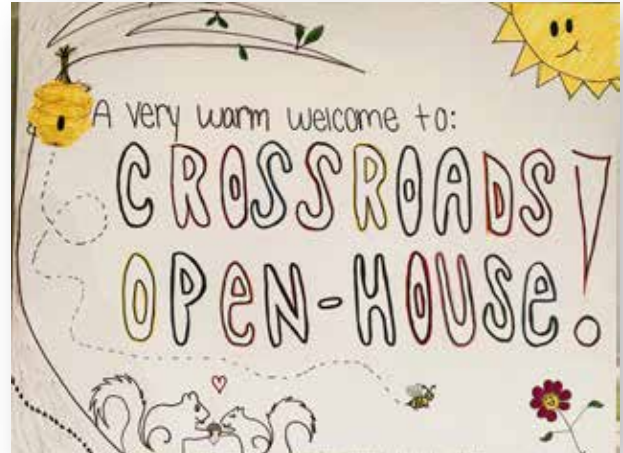 A very warm welcome to:
CROSSROADS!
OPEN-HOUSe